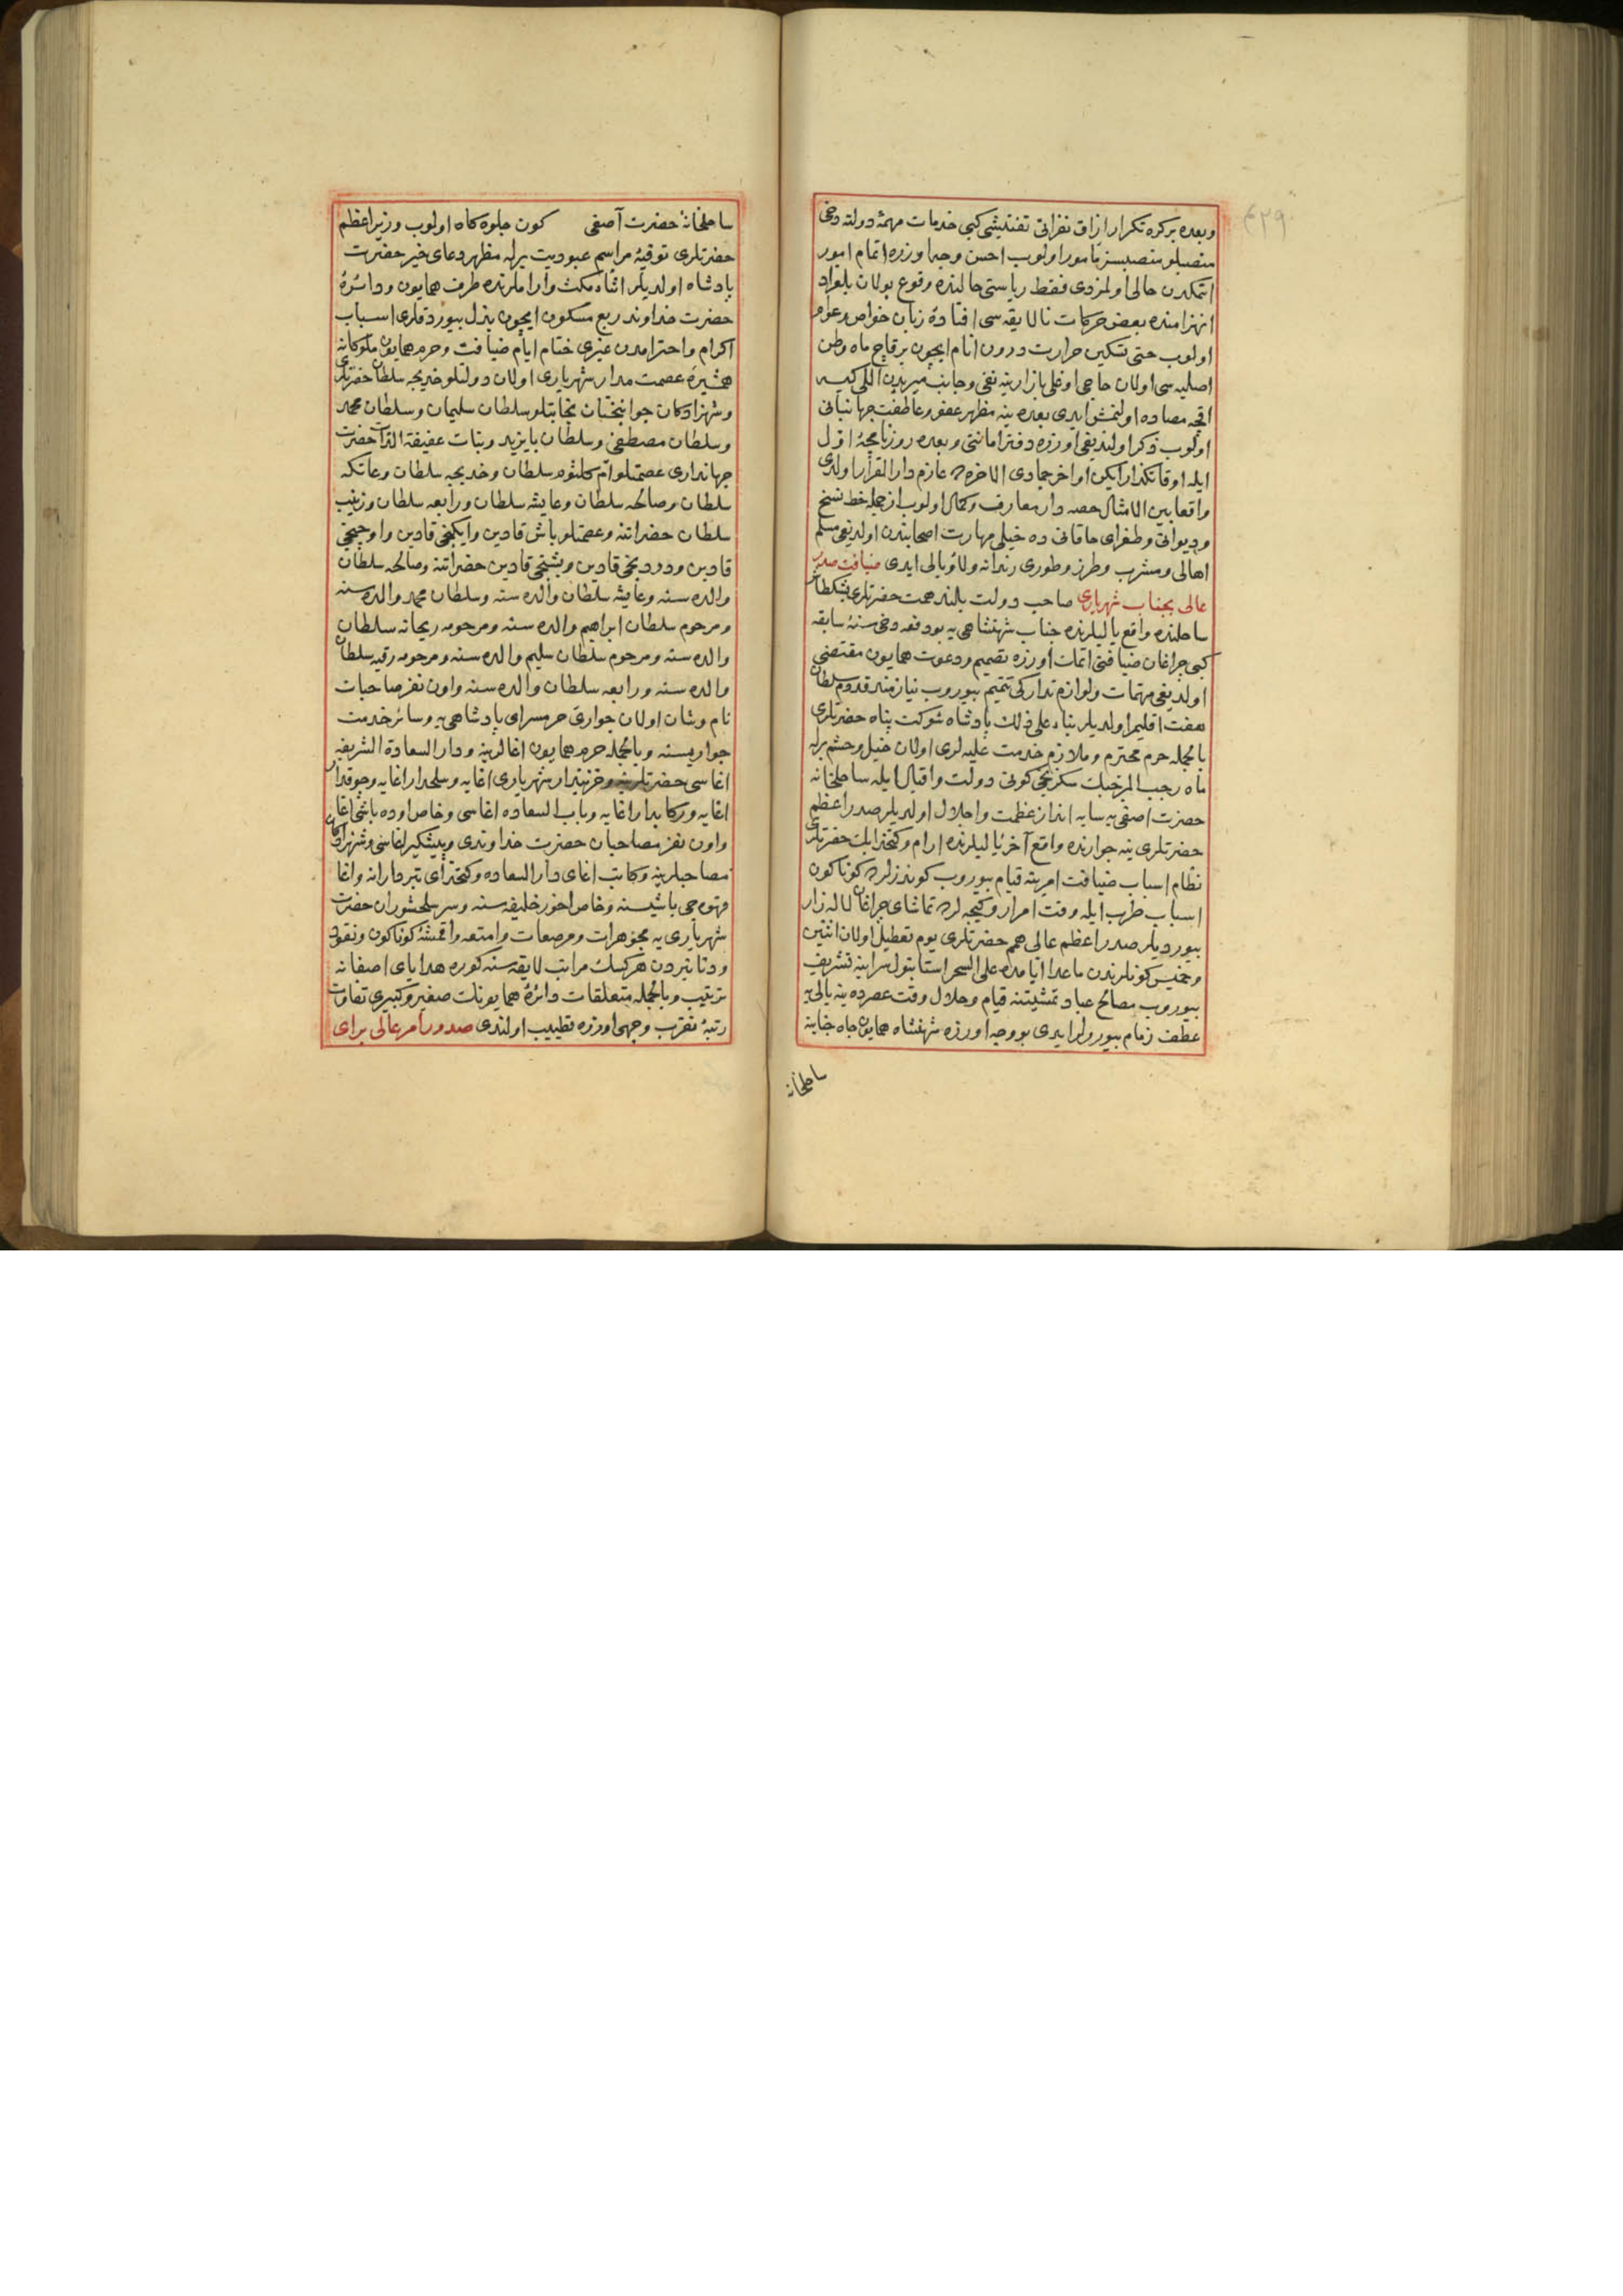 ٤٢٩
وبعده بر كره تكرار ارزاق نفراتی تفتیشی كبی خدمات مهمهٔ دولته دخی
منصبلو منصبسز مأمور اولوب احسن وجه اوزره اتمام امور
ایتمكدن خالی اولمزدی فقط ریاستی حالنده وقوع بولان بلغراد
انهزامنده بعض حركات نالایقه سی افتادهٔ زبان خواص وعوام
اولوب حتی تسكین حرارت درون انام ایچون بر قاچ ماه وطن
اصلیه سی اولان حاجی اوغلی بازارینه نفی وجانب میریدن اللی كیسه
اقچه مصادره اولنمش ایدی بعده ینه مظهر عفو وعاطفت جهانبانی
اولوب ذكر اولندیغی اوزره دفتر امانتی وبعده روزنامجهٔ اول
ایله اوقاتكذار ایكن اواخر جمادی الاخره ده عازم دار القرار اولدی
واقعا بین الامثال حصه دار معارف وكمال اولوب از جمله خط نسخ
ودیوانی وطغرای خاقانی ده خیلی مهارت اصحابندن اولدیغی مسلم
اهالی ومشرب وطرز وطوری رندانه ولاؤبالی ایدی ضیافت صدر
عالی بجناب شهریاری صاحب دولت بلند همت حضرتلری بشكطاش
ساحلنده واقع یالیلرنده جناب شهنشاهی یه بو دفعه دخی سنهٔ سابقه
كبی چراغان ضیافتی اتمك اوزره تصمیم ودعوت همایون مقتضی
اولدیغی مهمات ولوازم تداركی تتمیم بیوروب نیازمند قدوم سلطان
هفت اقلیم اولدیلر بناء علی ذلك پادشاه شوكت پناه حضرتلری
بالجمله حرم محترم وملازم خدمت علیه لری اولان خیل وحشم برله
ماه رجب المرجبك سكزنجی كونی دولت واقبال ایله ساحلخانه
حضرت اصفی یه سایه انداز عظمت واجلال اولدیلر صدر اعظم
حضرتلری ینه جوارنده واقع آخر یالیلرنده ارام وكتخدا بك حضرتلری
نظام اسباب ضیافت امرینه قیام بیوروب كوندزلرده كوناكون
اسباب طرب ایله وقت امرار وكیجه لرده تماشای چراغان لاله زار
بیوردیلر صدر اعظم عالی همم حضرتلری یوم تعطیل اولان اثنین
وخمیس كونلرندن ماعدا ایامده علی السحر استانبول سراینه تشریف
بیوروب مصالح عباد تمشیتنه قیام وخلال وقت عصرده ینه یالی یه
عطف زمام بیورولر ایدی بو وجه اوزره شهنشاه همایون جاه جنابنه
ساحلخانه
ساحلخانهٔ حضرت آصفی كون جلوه كاه اولوب وزیر اعظم
حضرتلری توفیهٔ مراسم عبودیت برله مظهر دعای خیر حضرت
پادشاه اولدیلر اثناء مكث وآراملرنده طرف همایون ودائرهٔ
حضرت خداوند ربع مسكون ایچون بذل بیوردقلری اسباب
اكرام واحترامدن غیری ختام ایام ضیافت وحرم همایون ملوكانه
همشیرهٔ عصمت مدار شهریاری اولان دولتلو خدیجه سلطان حضرتلری
وشهزادكان جوانبختان نجابتلو سلطان سلیمان وسلطان محمد
وسلطان مصطفی وسلطان بایزید وبنات عفیفة الذات حضرت
جهانداری عصمتلو ام كلثوم سلطان وخدیجه سلطان وعاتكه
سلطان وصالحه سلطان وعایشه سلطان ورابعه سلطان وزینب
سلطان حضراتنه وعصمتلو باش قادین وایكنجی قادین واوچنجی
قادین ودردنجی قادین وبشنجی قادین حضراتنه وصالحه سلطان
والده سنه وعایشه سلطان والده سنه وسلطان محمد والده سنه
ومرحوم سلطان ابراهیم والده سنه ومرحومه ریحانه سلطان
والده سنه ومرحوم سلطان سلیم والده سنه ومرحومه رقیه سلطان
والده سنه ورابعه سلطان والده سنه واون نفر صاحبات
نام وشان اولان جواریٔ حرمسرای پادشاهی یه وسائر خدمت
جواریسنه وبالجمله حرم همایون اغالرینه ودار السعادة الشریفه
اغاسی حضرتلرینه وخزینه دار شهریاری اغایه وسلحدار اغایه وچوقدار
اغایه وركابدار اغایه وباب السعاده اغاسی وخاص اوده باشی اغایه
واون نفر مصاحبان حضرت خداوندی وپیشكیر اغاسی وشهزادكان
مصاحبلرینه وكاتب اغای دار السعاده وكتخدای تبردارانه واغا
قهوه جی باشیسنه وخاص اخور خلیفه سنه وسر سلحشوران حضرت
شهریاری یه مجوهرات ومرصعات وامتعه واقمشهٔ كوناكون ونقود
ودنانیردن هر كسك مراتب لایقه سنه كوره هدایای اصفانه
ترتیب وبالجمله متعلقات دائرهٔ همایونك صغیر وكبیری تفاوت
رتبهٔ تقرب وجهی اوزره تطییب اولندی صدور امر عالی برای